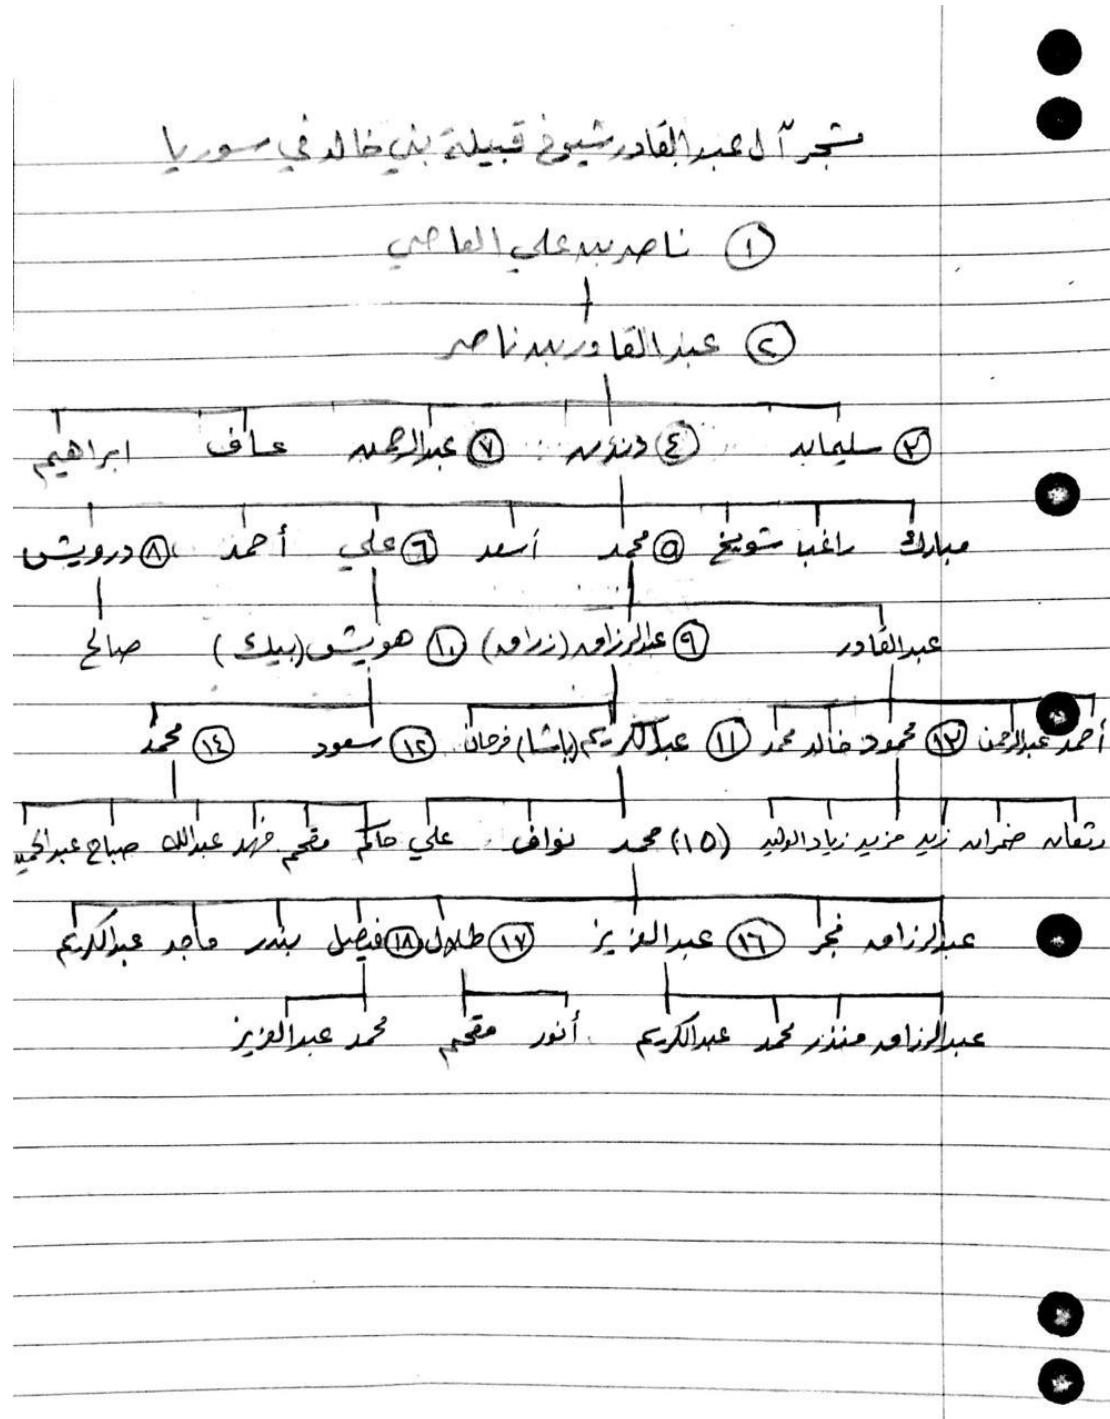 شجر آل عبدالقادر شيوخ قبيلة بني خالد في سوريا
① ناصر بن علي العاصي
② عبدالقادر بن ناصر
③ سليمان ④ دندن ⑦ عبدالرحمن عساف ابراهيم
مبارك راغب شويخ ⑤ محمد أسعد ⑥ علي أحمد ⑧ درويش
عبدالقادر ⑨ عبدالرزاق (زراق) ⑩ هويش (بيك) صالح
أحمد عبدالرحمن ⑬ محمود خالد محمد ⑪ عبدالكريم (باشا) فرحان ⑫ سعود ⑭ محمد
دتعان ضمران زيد مزيد زياد الوليد (١٥) محمد نواف علي حاكم مقحم فهد عبدالله صباح عبدالحميد
عبدالرزاق فجر ⑯ عبدالعزيز ⑰ طلال ⑱ فيصل بندر ماجد عبدالكريم
عبدالرزاق منذر محمد عبدالكريم أنور مقحم محمد عبدالعزيز